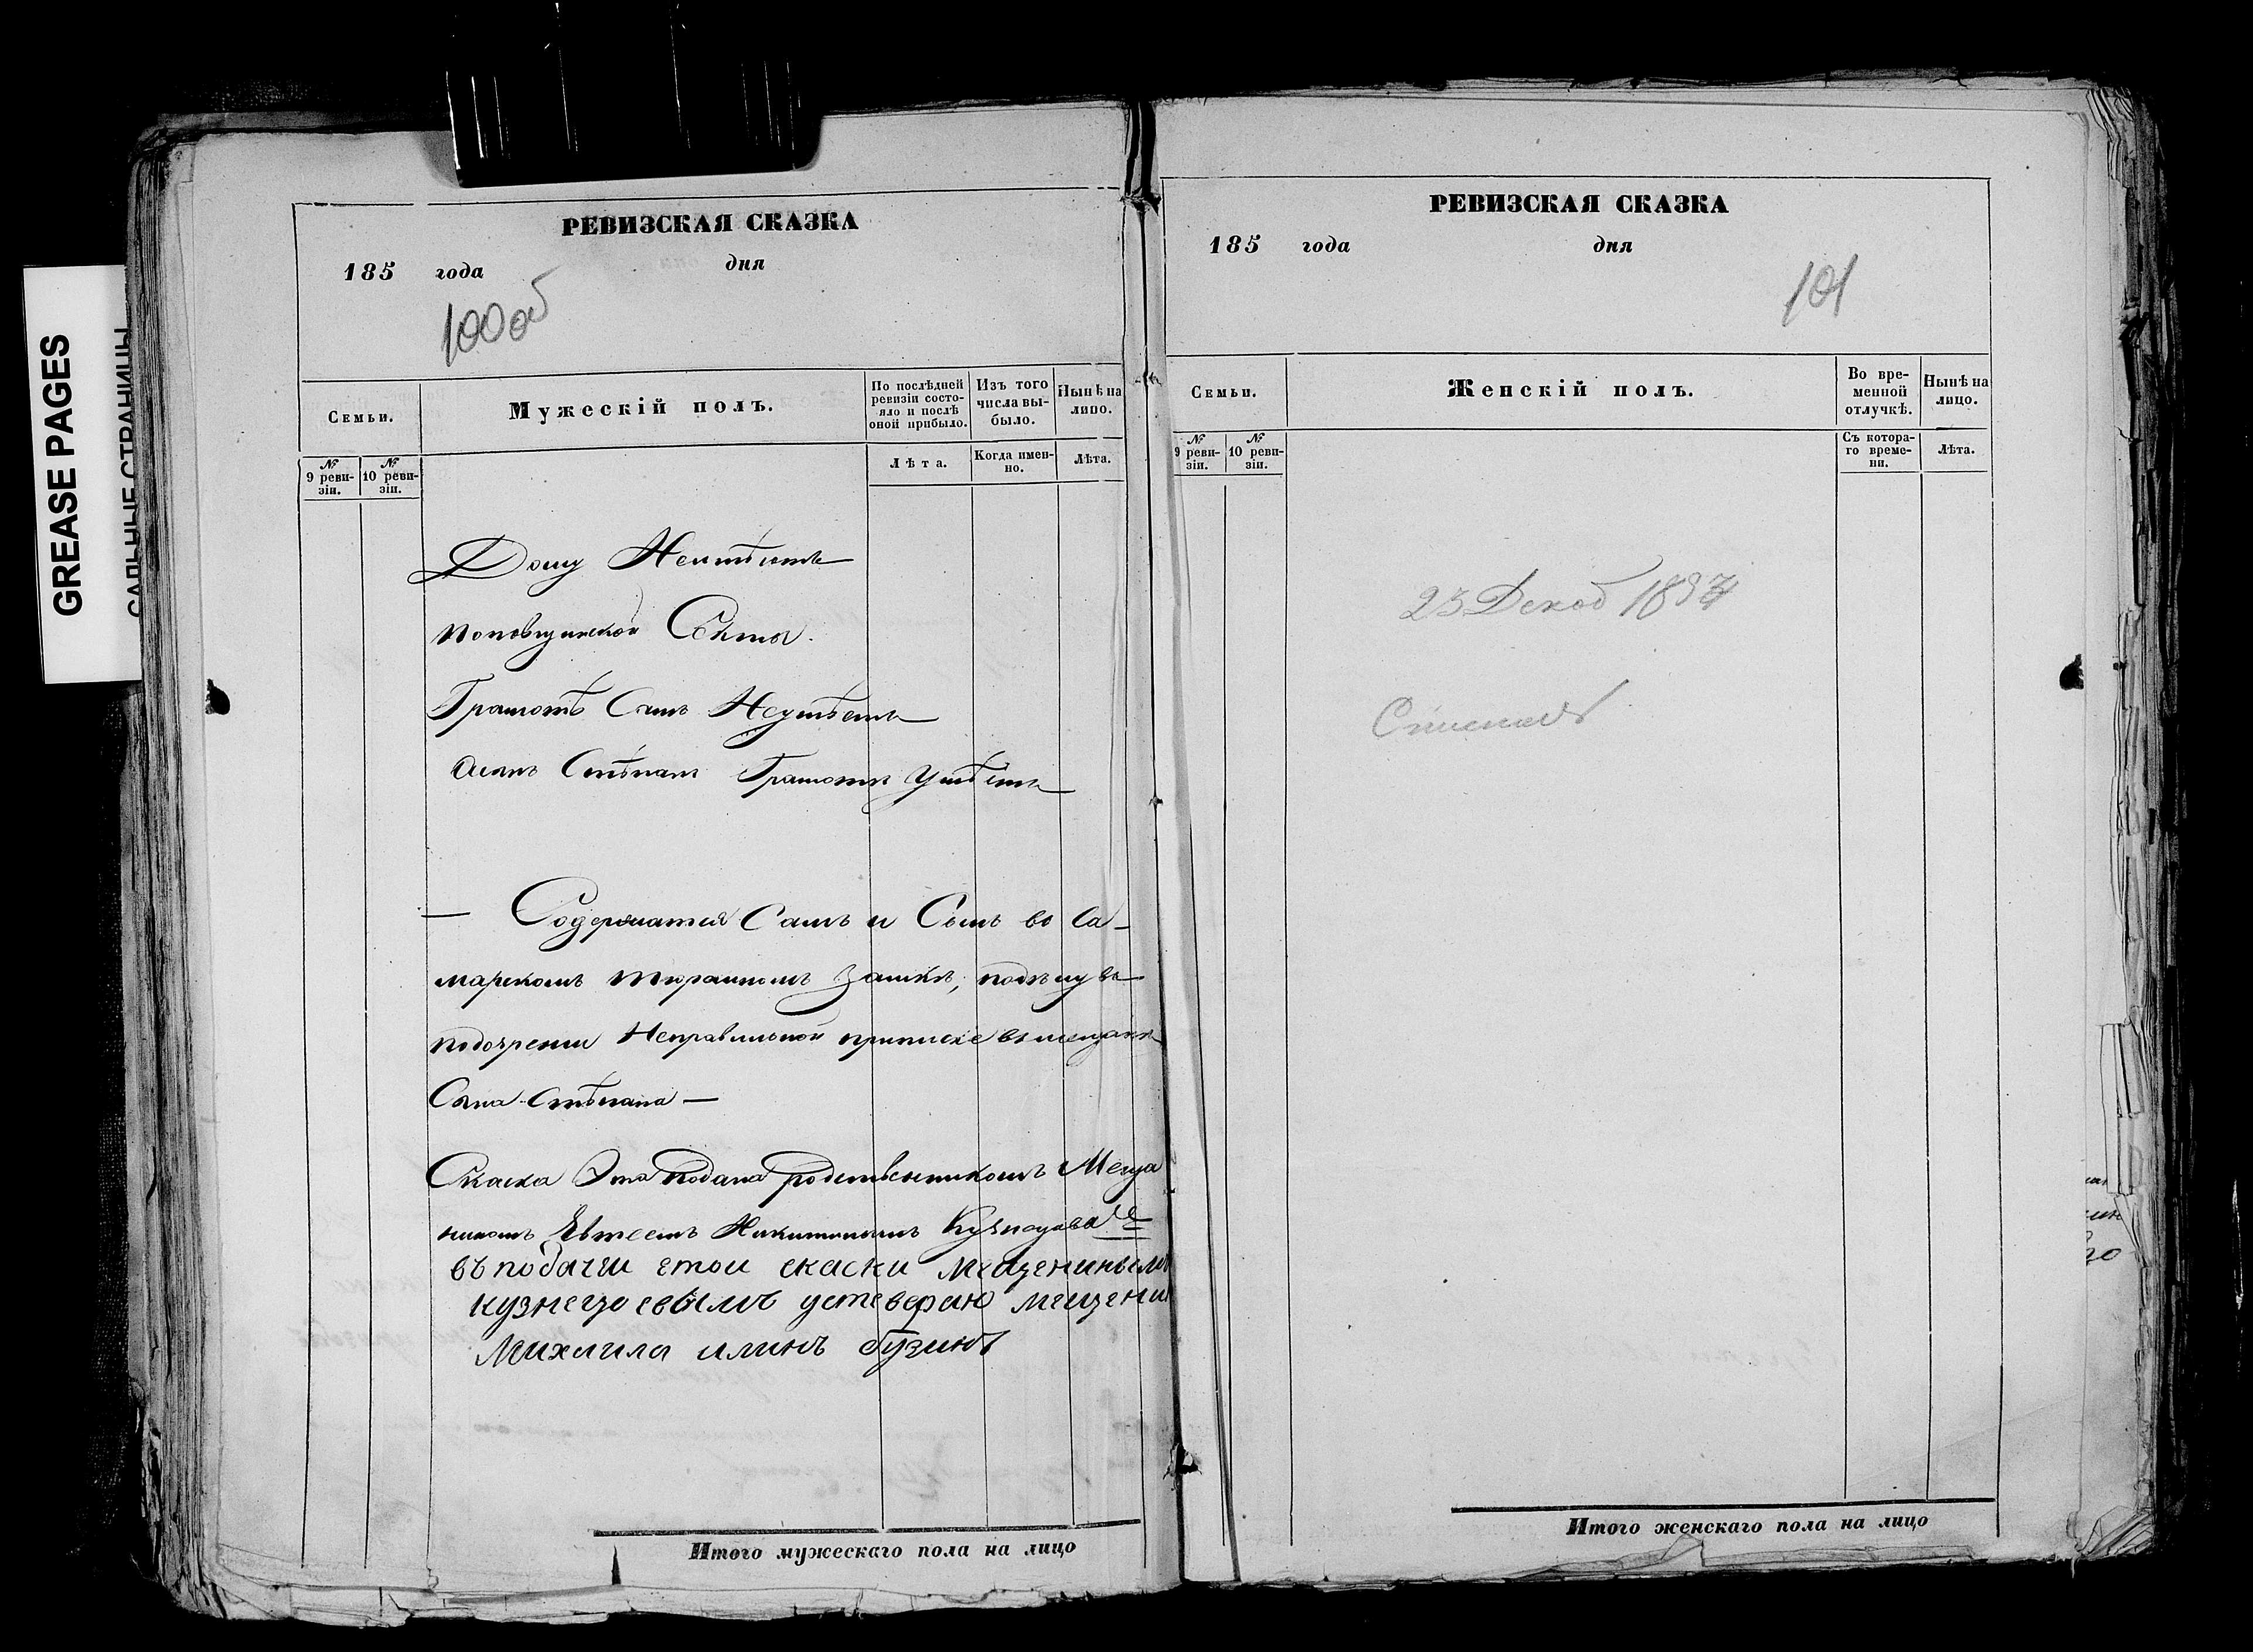 GREASE PAGES
САЛЬНЫЕ СТРАНИЦЫ
РЕВИЗСКАЯ СКАЗКА
185 года дня
100 об
Семьи.
Мужескій полъ.
По послѣдней ревизіи состояло и послѣ оной прибыло.
Изъ того числа выбыло.
Нынѣ на лицо.
№ 9 ревизіи.
№ 10 ревизіи.
Лѣта.
Когда именно.
Лѣта.
Дому Неимѣитъ
поповщинской Секты.
Грамотѣ Самъ Неумѣетъ
Сынъ Стѣпанъ Грамотѣ Умѣетъ
— Содержатся Самъ и Сынъ во Са-
марскомъ тюрамномъ Замкѣ, по
подозрении Неправильной приписке въ мещане
Сына Стѣпана —
Скаска Эта подана родственникомъ Меща
ниномъ Евтеемъ Никитинымъ Кузнецовы
въ подачи етои скаски мещениныемъ
кузнецоевымъ устеверяю мещени
Михаила илинъ бузинъ
Итого мужескаго пола на лицо
РЕВИЗСКАЯ СКАЗКА
185 года дня
101
Семьи.
Женскій полъ.
Во временной отлучкѣ.
Нынѣ на лицо.
№ 9 ревизіи.
№ 10 ревизіи.
Съ котораго времени.
Лѣта.
23 Декаб
Итого женскаго пола на лицо